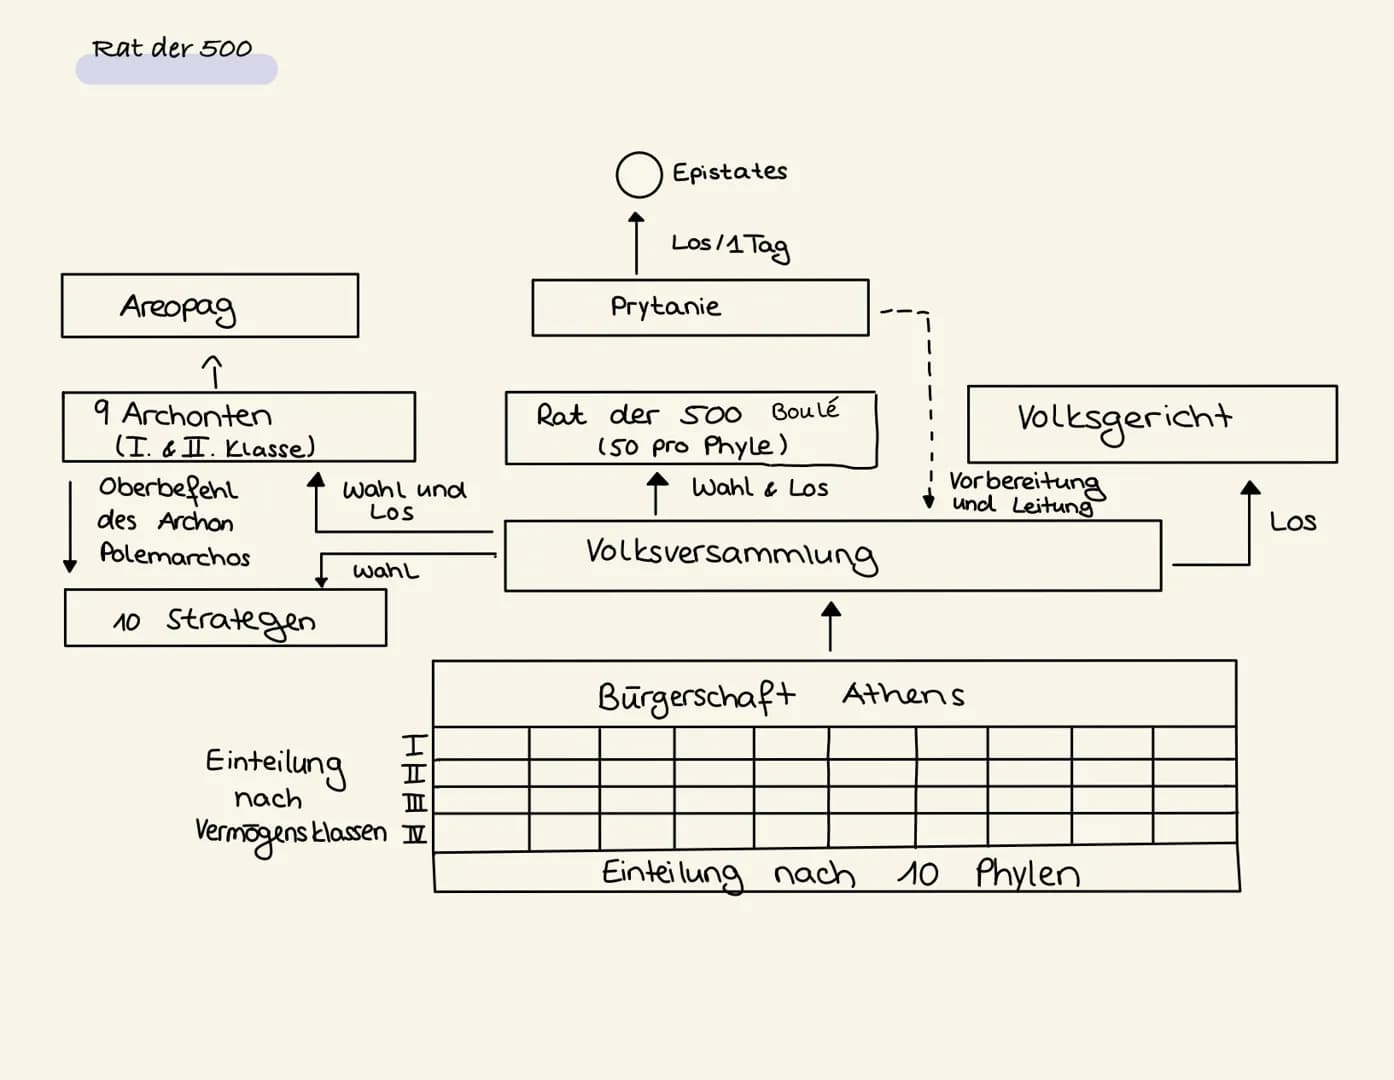 Rat der 500
Epistates
Los/1Tag
Areopag
Prytanie
9 Archonten
(I. & II. Klasse)
Rat der 500 Boulé
(50 pro Phyle)
Volksgericht
Oberbefehl
des Archon
Polemarchos
Wahl und
Los
Wahl & Los
Vorbereitung
und Leitung
Los
Volksversammlung
Wahl
10 Strategen
Bürgerschaft Athens
Einteilung
nach
Vermögensklassen
I
II
III
IV
Einteilung nach 10 Phylen